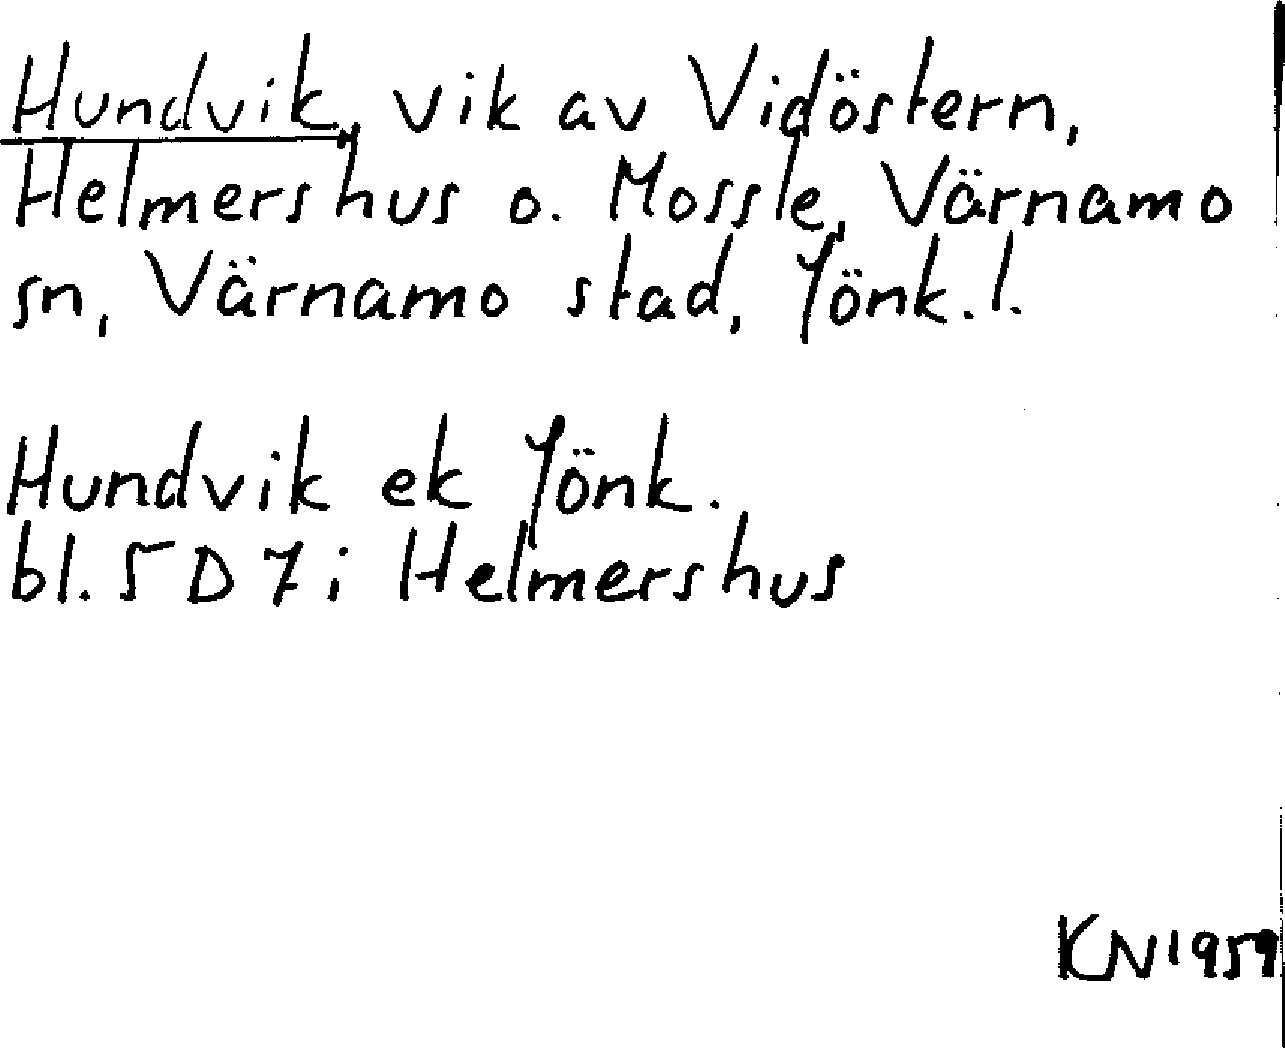 Hundvik, vik av Vidöstern,
Helmershus o. Mossle, Värnamo
sn, Värnamo stad, Jönk.l.
Hundvik ek Jönk.
bl. 5 D 7 i Helmershus
KN 1959